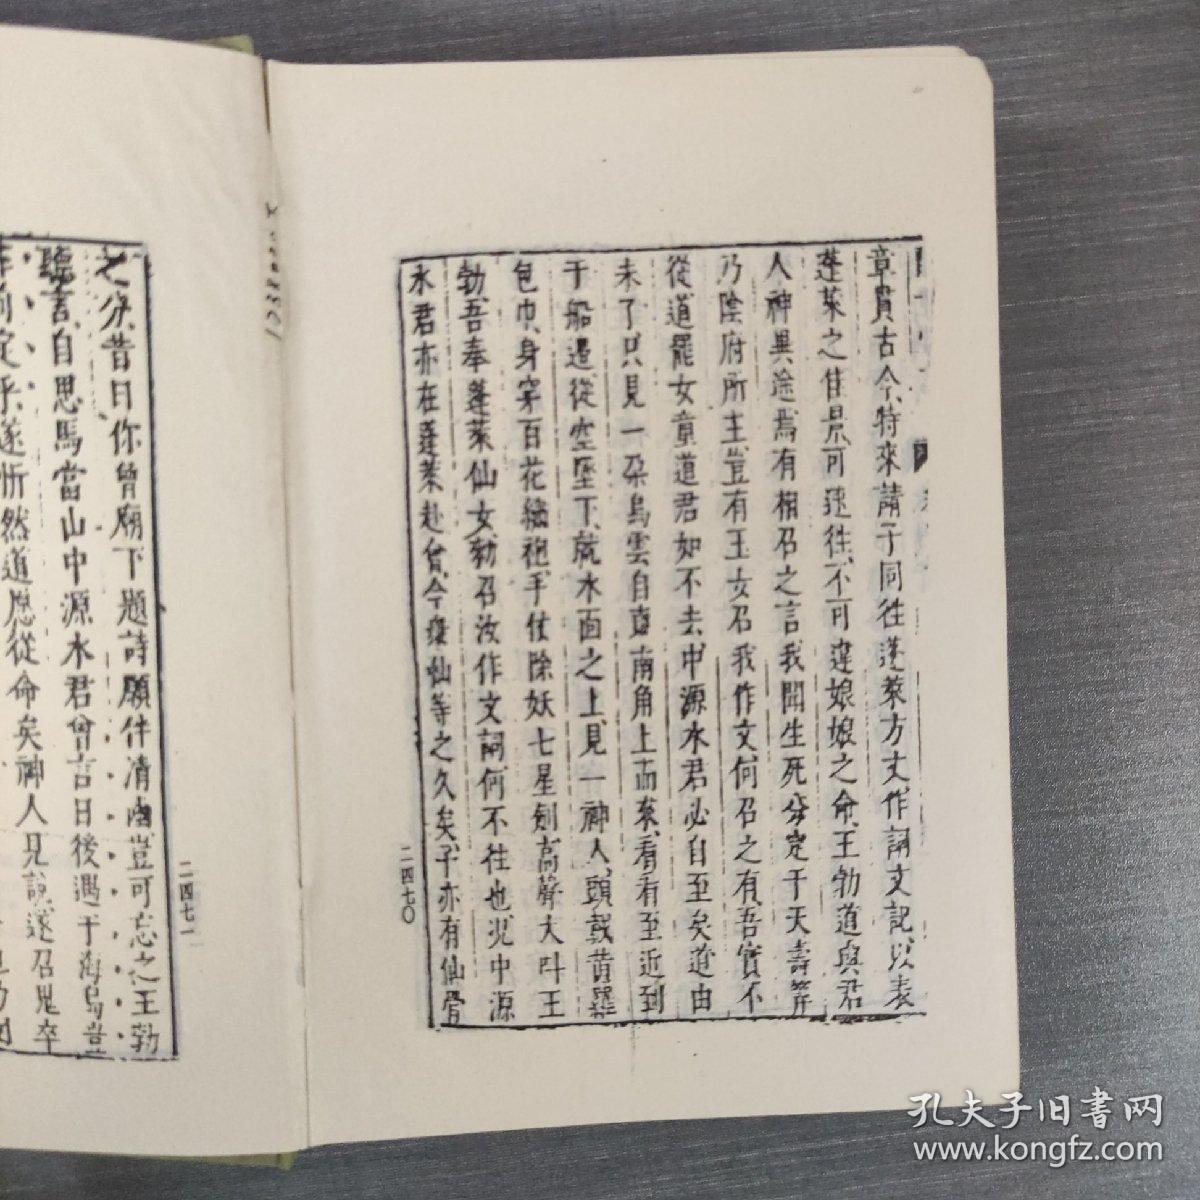 章貫古今特來請子同往蓬萊方丈作詞文記以表
蓬萊之佳景可速往不可違娘娘之命王勃道與君
人神異途焉有相召之言我聞生死分定于天壽算
乃陰府所主豈有玉女召我作文何召之有吾實不
從道罷女童道君如不去中源水君必自至矣道由
未了只見一朶烏雲自東南角上而來看看至近到
于船邊從空墜下就水面之上見一神人頭戴黃羅
包巾身穿百花繡袍手仗除妖七星劍高聲大叫王
勃吾奉蓬萊仙女勅召汝作文詞何不往也況中源
水君亦在蓬萊赴會今衆仙等之久矣子亦有仙骨
二四七〇
之分昔日你曾廟下題詩願伴清幽豈可忘之王勃
聽言自思馬當山中源水君曾言日後遇于海島豈
前定乎遂忻然道愿從命矣神人見說遂召鬼卒
二四七一
孔夫子旧書网
www.kongfz.com